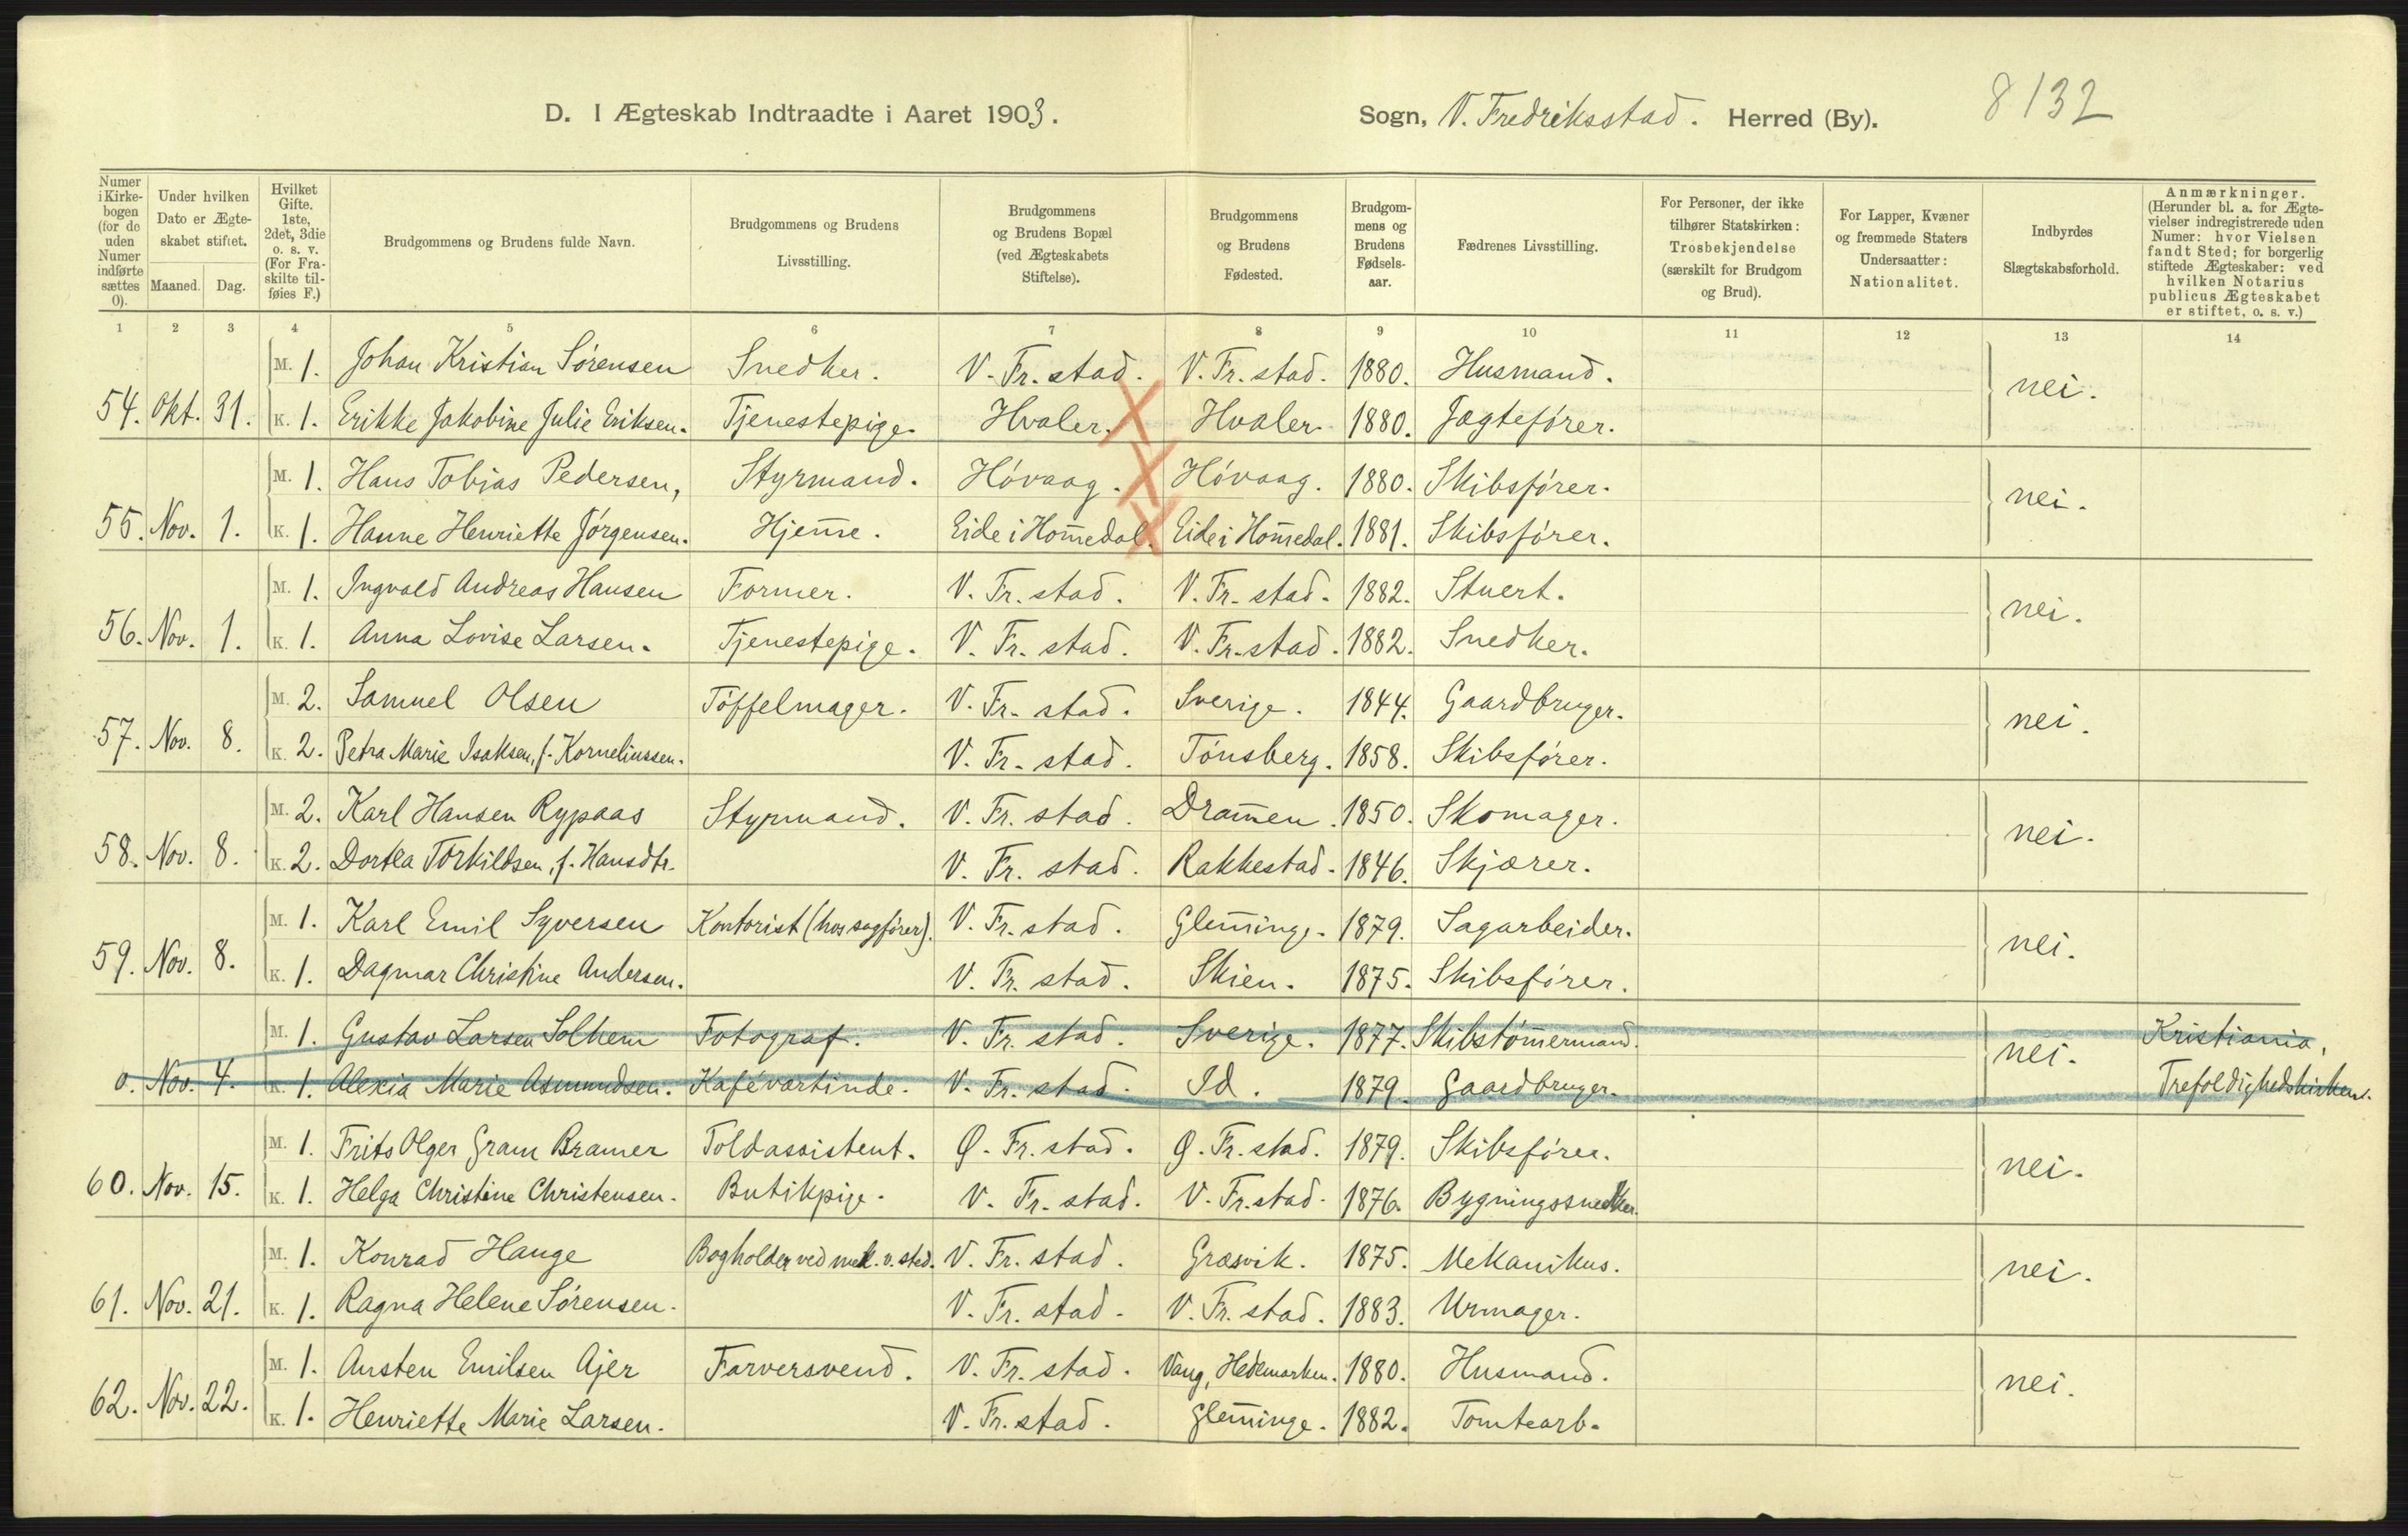 D. I Ægteskab Indtraadte i Aaret 1903. Sogn, V. Fredriksstad. Herred (By). 8132
Numer i Kirkebogen (for de uden Numer indførte sættes 0).
Under hvilken Dato er Ægteskabet stiftet.
Maaned. Dag.
Hvilket Gifte. 1ste, 2det, 3die o. s. v. (For Fraskilte tilføies F.)
Brudgommens og Brudens fulde Navn.
Brudgommens og Brudens Livsstilling.
Brudgommens og Brudens Bopæl (ved Ægteskabets Stiftelse).
Brudgommens og Brudens Fødested.
Brudgommens og Brudens Fødselsaar.
Fædrenes Livsstilling.
For Personer, der ikke tilhører Statskirken: Trosbekjendelse (særskilt for Brudgom og Brud).
For Lapper, Kvæner og fremmede Staters Undersaatter: Nationalitet.
Indbyrdes Slægtskabsforhold.
Anmærkninger. (Herunder bl. a. for Ægtevielser indregistrerede uden Numer: hvor Vielsen fandt Sted; for borgerlig stiftede Ægteskaber: ved hvilken Notarius publicus Ægteskabet er stiftet, o. s. v.)
1 2 3 4 5 6 7 8 9 10 11 12 13 14
M. 1. Johan Kristian Sørensen Snedker. V. Fr. stad. V. Fr. stad. 1880. Husmand. nei.
54. Okt. 31. K. 1. Erikke Jakobine Julie Eriksen. Tjenestepige. Hvaler. Hvaler. 1880. Jagtefører.
M. 1. Hans Tobias Pedersen, Styrmand. Høvaag. Høvaag. 1880. Skibsfører. nei.
55. Nov. 1. K. 1. Hanne Henriette Jørgensen. Hjem̄e. Eide i Hom̄edal. Eide i Hom̄edal. 1881. Skibsfører.
M. 1. Ingvald Andreas Hansen Former. V. Fr. stad. V. Fr. stad. 1882. Stuert. nei.
56. Nov. 1. K. 1. Anna Lovise Larsen. Tjenestepige. V. Fr. stad. V. Fr. stad. 1882. Snedker.
M. 2. Samuel Olsen Tøffelmager. V. Fr. stad. Sverige. 1844. Gaardbruger. nei.
57. Nov. 8. K. 2. Petra Marie Isaksen, f. Korneliussen. V. Fr. stad. Tønsberg. 1858. Skibsfører.
M. 2. Karl Hansen Rypaas Styrmand. V. Fr. stad. Dram̄en. 1850. Skomager. nei.
58. Nov. 8. K. 2. Dortea Torkildsen, f. Hansdtr. V. Fr. stad. Rakkestad. 1846. Skjærer.
M. 1. Karl Emil Syversen Kontorist (hos sagfører). V. Fr. stad. Glem̄inge. 1879. Sagarbeider. nei.
59. Nov. 8. K. 1. Dagmar Christine Andersen. V. Fr. stad. Skien. 1875. Skibsfører.
M. 1. Gustav Larsen Solhem Fotograf. V. Fr. stad. Sverige. 1877. Skibstøm̄ermand. nei. Kristiania,
0. Nov. 4. K. 1. Alexia Marie Asmundsen. Kafévartinde. V. Fr. stad. Id. 1879. Gaardbruger. Trefoldighedskirken.
M. 1. Frits Olger Gram Bramer Toldassistent. Ø. Fr. stad. Ø. Fr. stad. 1879. Skibsfører. nei.
60. Nov. 15. K. 1. Helga Christine Christensen. Butikpige. V. Fr. stad. V. Fr. stad. 1876. Bygningssnedker.
M. 1. Konrad Hauge Bogholder ved mek. v. sted. V. Fr. stad. Græsvik. 1875. Mekanikus. nei.
61. Nov. 21. K. 1. Ragna Helene Sørensen. V. Fr. stad. V. Fr. stad. 1883. Urmager.
M. 1. Austen Emilsen Ajer Farversvend. V. Fr. stad. Vang, Hedemarken. 1880. Husmand. nei.
62. Nov. 22. K. 1. Henriette Marie Larsen. V. Fr. stad. Glem̄inge. 1882. Tomtearb.